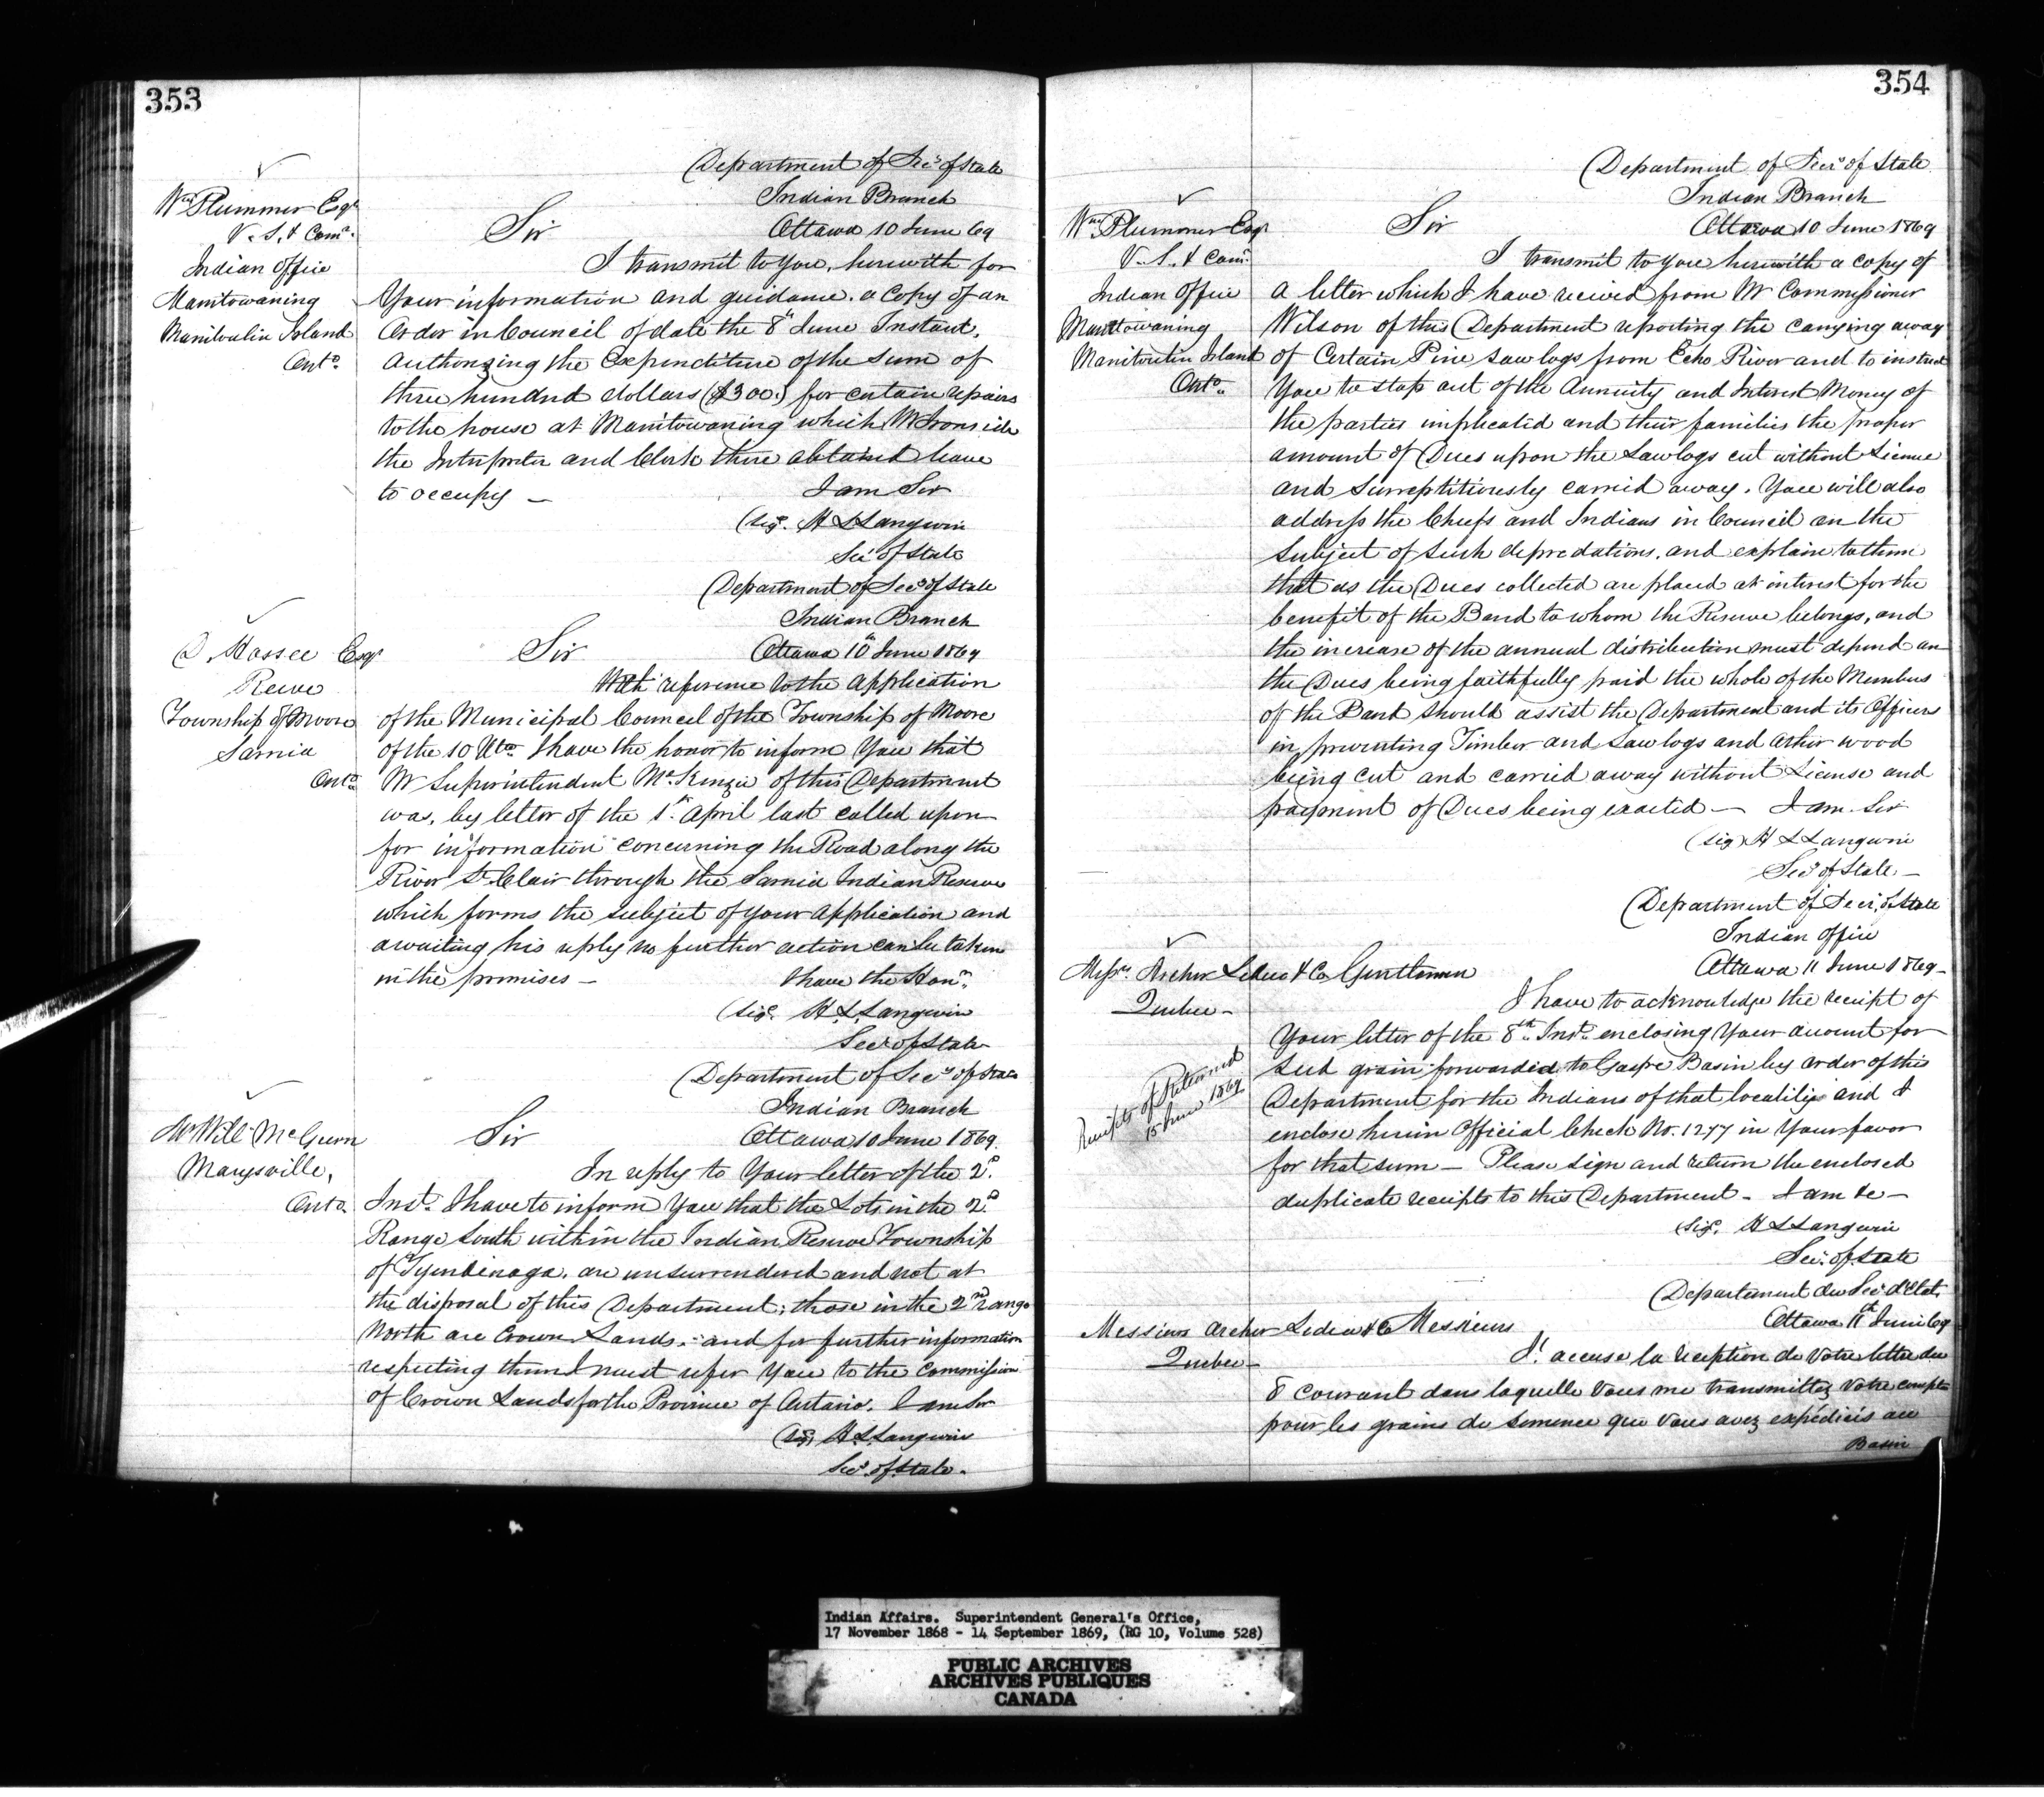 353
Department of Secy of State
Indian Branch
Wm Plummer Esqr
V. S. & Comr.
Sir
Ottawa 10 June 69
Indian Office
Manitowaning
Manitoulin Island
Onto.
I transmit to you, herewith for
Your information and guidance. a Copy of an
Order in Council of date the 8th June Instant,
authorizing the Expenditure of the sum of
three hundred dollars ($300.) for certain repairs
to the house at Manitowaning which Mr Ironside
the Interpreter and Clerk there obtained leave
to occupy —
I am Sir
(Sigd. H L Langevin
Secy of State
Department of Secy of State
Indian Branch
Esqr
Sir
Ottawa 10th June 1869
Reeve
Township of Moore
Sarnia
Onto
With reference to the application
of the Municipal Council of the Township of Moore
of the 10 Ulto. I have the honor to inform You that
Mr Superintendent McKenzie of this Department
was, by letter of the 1st. April last called upon
for information concerning the Road along the
River St. Clair through the Sarnia Indian Reserve
which forms the subject of your application and
awaiting his reply no further action can be taken
in the premises —
I have the Honr.
(Sigd. H. L. Langevin
Secy of State
Department of Secy of State
Indian Branch
Mr Will McGurn
Marysville,
Onto.
Sir
Ottawa 10 June 1869.
In reply to Your letter of the 2d.
Inst. I have to inform You that the Lots in the 2d
Range South within the Indian Reserve Township
of Tyendenaga. are unsurrendered and not at
the disposal of this Department; those in the 2nd range
North are Crown Lands. and for further information
respecting them I must refer You to the Commission
of Crown Lands for the Province of Ontario. I am Sir
(Sig) H. L. Langevin
Secy. of State.
354
Department of Secy of State
Indian Branch
Wm Plummer Esqr
V. S. & Comr.
Indian Office
Manitowaning
Manitoulin Island
Onto.
Sir
Ottawa 10 June 1869
I transmit to you herewith a copy of
a letter which I have received from Mr Commissioner
Wilson of this Department reporting the carrying away
of Certain Pine saw logs from Echo River and to instruct
You to stop out of the Annuity and Interest Money of
the parties implicated and their families the proper
amount of Dues upon the Sawlogs cut without License
and surreptitiously carried away. You will also
address the Chiefs and Indians in Council on the
subject of such depredations, and explain to them
that as the Dues collected are placed at interest for the
benefit of the Band to whom the Reserve belongs, and
the increase of the annual distribution must depend on
the Dues being faithfully paid the whole of the Members
of the Band should assist the Department and its Officers
in preventing Timber and Saw logs and other wood
being cut and carried away without License and
payment of Dues being exacted — I am Sir
(Sig) H L Langevin
Secy of State —
Department of Secy. of State
Indian Office
Messrs. Archer Leduc & Co
Quebec —
Gentlemen
Ottawa 11 June 1869 —
I have to acknowledge the receipt of
Your letter of the 8th. Inst. enclosing Your account for
seed grain forwarded to Gaspe Basin by order of this
Department for the Indians of that locality and I
enclose herein Official Check No. 1277 in Your favor
for that sum — Please sign and return the enclosed
duplicate receipts to this Department — I am &c —
Receipts Returned
15 June 1869
Sigd. H L Langevin
Secy. of State
Departement du Secr. d'Etat,
Ottawa 11th Juin 69
Messieurs Archer Leduc & Co
Quebec —
Messieurs
J'accuse la reception de Votre lettre du
8 courant dans laquelle Vous me transmettez Votre compte
pour les grains de semence que Vous avez expédiés au
Basin
Indian Affairs. Superintendent General's Office,
17 November 1868 - 14 September 1869, (RG 10, Volume 528)
PUBLIC ARCHIVES
ARCHIVES PUBLIQUES
CANADA